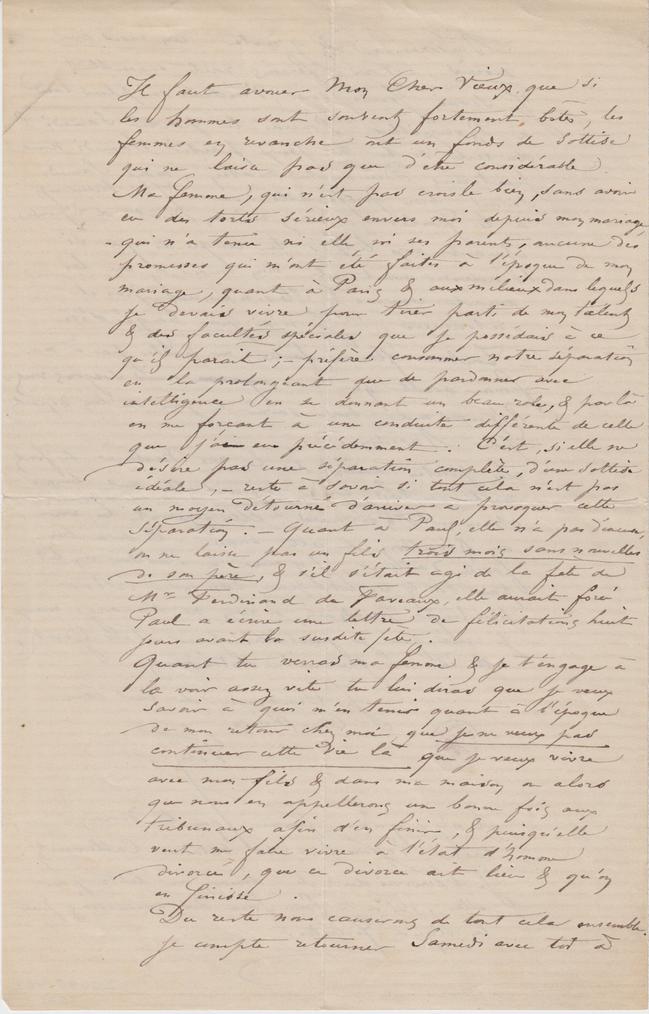 Il faut avouer Mon Cher Vieux que si
les hommes sont souvent fortement bêtes, les
femmes en revanche ont un fonds de sottise
qui ne laisse pas que d'être considérable
Ma femme, qui n'est pas bien, sans avoir
eu des torts sérieux envers moi depuis mon mariage
- qui n'a tenu ni elle ni ses parents, aucune des
promesses qui m'ont été faites à l'époque de mon
mariage, quant à Paris & aux milieux dans lesquels
je devais vivre pour tirer parti de mon talent
& des facultés spéciales que je possédais à ce
qu'il parait ; - préfère consommer notre séparation
en la prolongeant que de pardonner avec
intelligence en se donnant un beau role, & par là
en me forçant à une conduite différente de celle
que j'ai eue précédemment. C'est, si elle ne
désire pas une séparation complète, d'une sottise
idéale, - reste à savoir si tout cela n'est pas
un moyen détourné d'arriver a provoquer cette
séparation. - Quant à Paul, elle n'a pas d'excuse,
on ne laisse pas un fils trois mois sans nouvelles
de son père, & s'il s'était agi de la fete de
Mr Ferdinand de Faveaux, elle aurait forcé
Paul a ecrire une lettre de félicitations huit
jours avant la susdite fete.
Quant tu verras ma femme & je t'engage à
la voir assez vite tu lui diras que je veux
savoir à quoi m'en tenir quant à l'époque
de mon retour chez moi, que je ne veux pas
continuer cette vie là que je veux vivre
avec mon fils & dans ma maison ou alors
que nous en appellerons une bonne fois aux
tribunaux afin d'en finir, & puisqu'elle
veut me faire vivre à l'état d'homme
divorcé, que ce divorce ait lieu & qu'on
en finisse.
Du reste nous causerons de tout cela ensemble.
Je compte retourner Samedi avec toi à